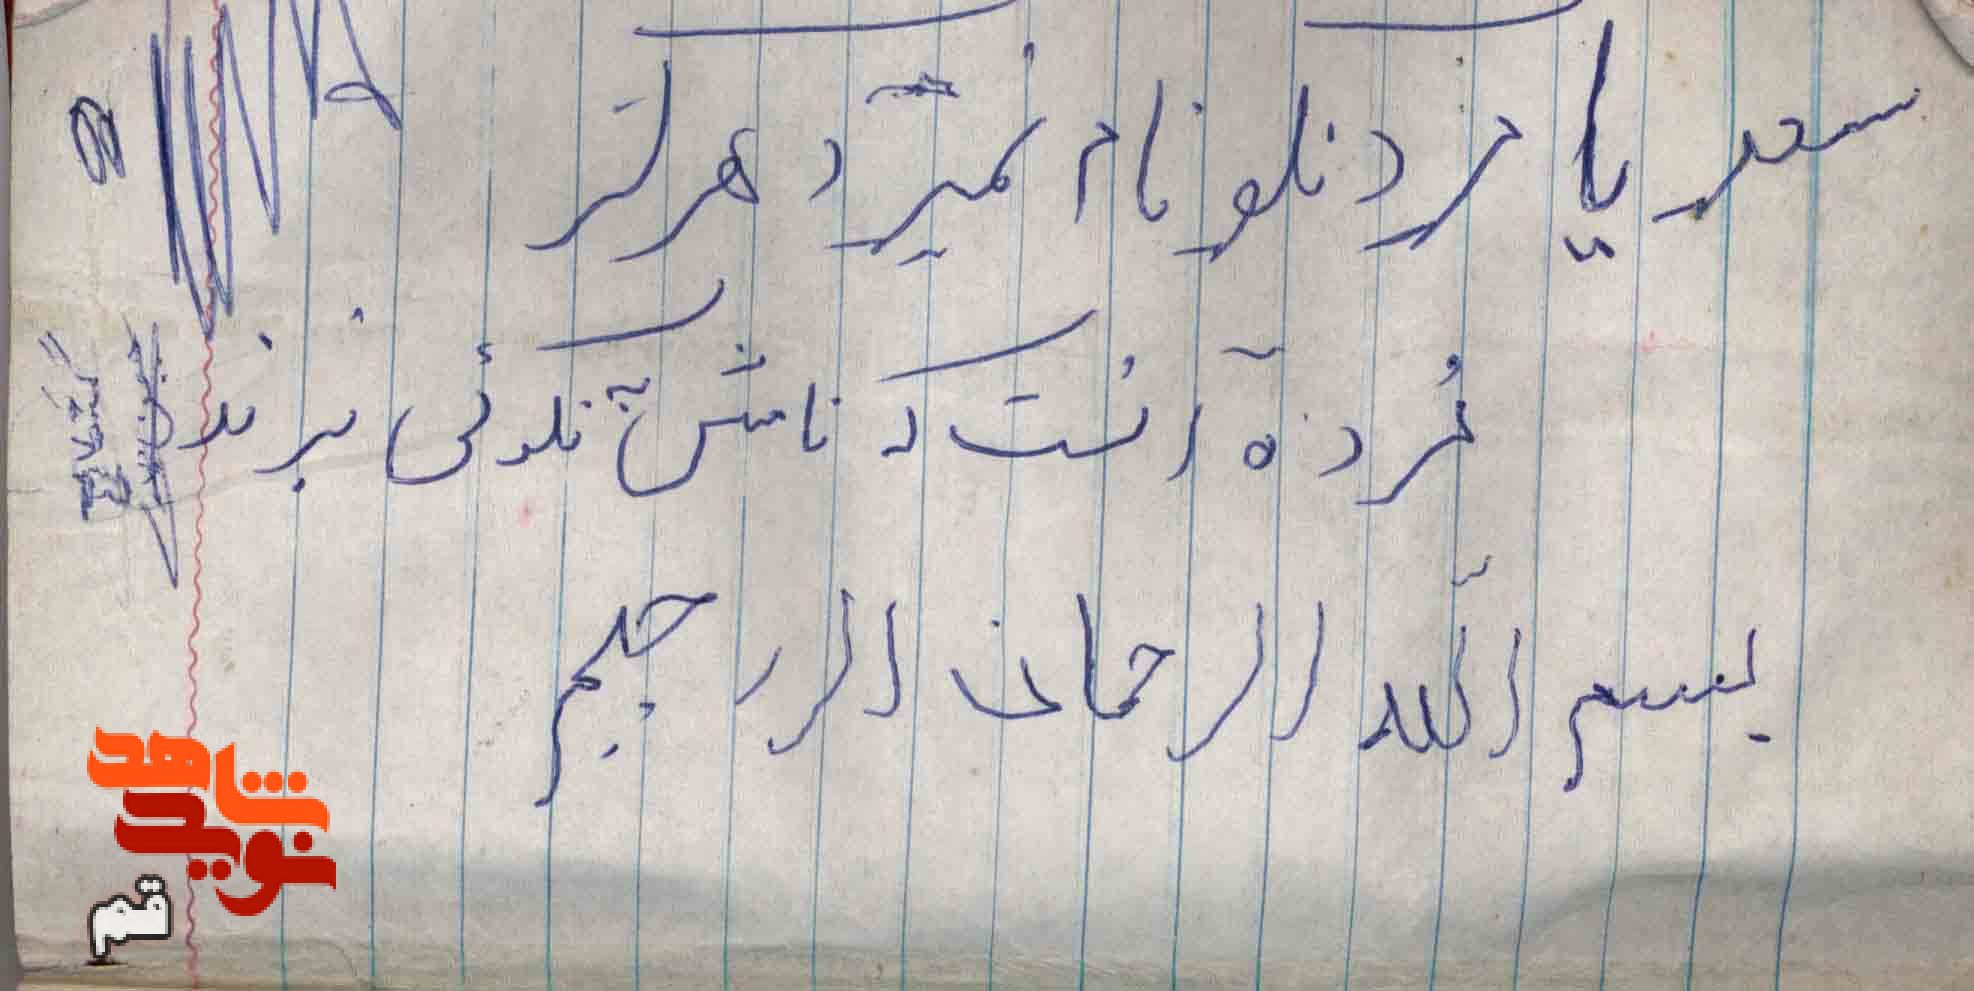 سعدیا مرد نکو نام نمیرد هرگز
مُرده آنست که نامش به نکوئی نبرند
بسم الله الرحمان الرحیم
شاهد
نوید
قم